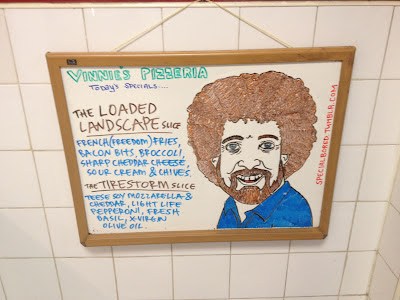 VINNIE'S PIZZERIA
TODAY'S SPECIALS....
THE LOADED
LANDSCAPE SLICE
FRENCH (FREEDOM) FRIES,
BACON BITS, BROCCOLI,
SHARP CHEDDAR CHEESE,
SOUR CREAM & CHIVES.
THE TIRESTORM SLICE
TEESE SOY MOZZARELLA &
CHEDDAR, LIGHT LIFE
PEPPERONI, FRESH
BASIL, X-VIRGIN
OLIVE OIL.
SPECIALBORED.TUMBLR.COM